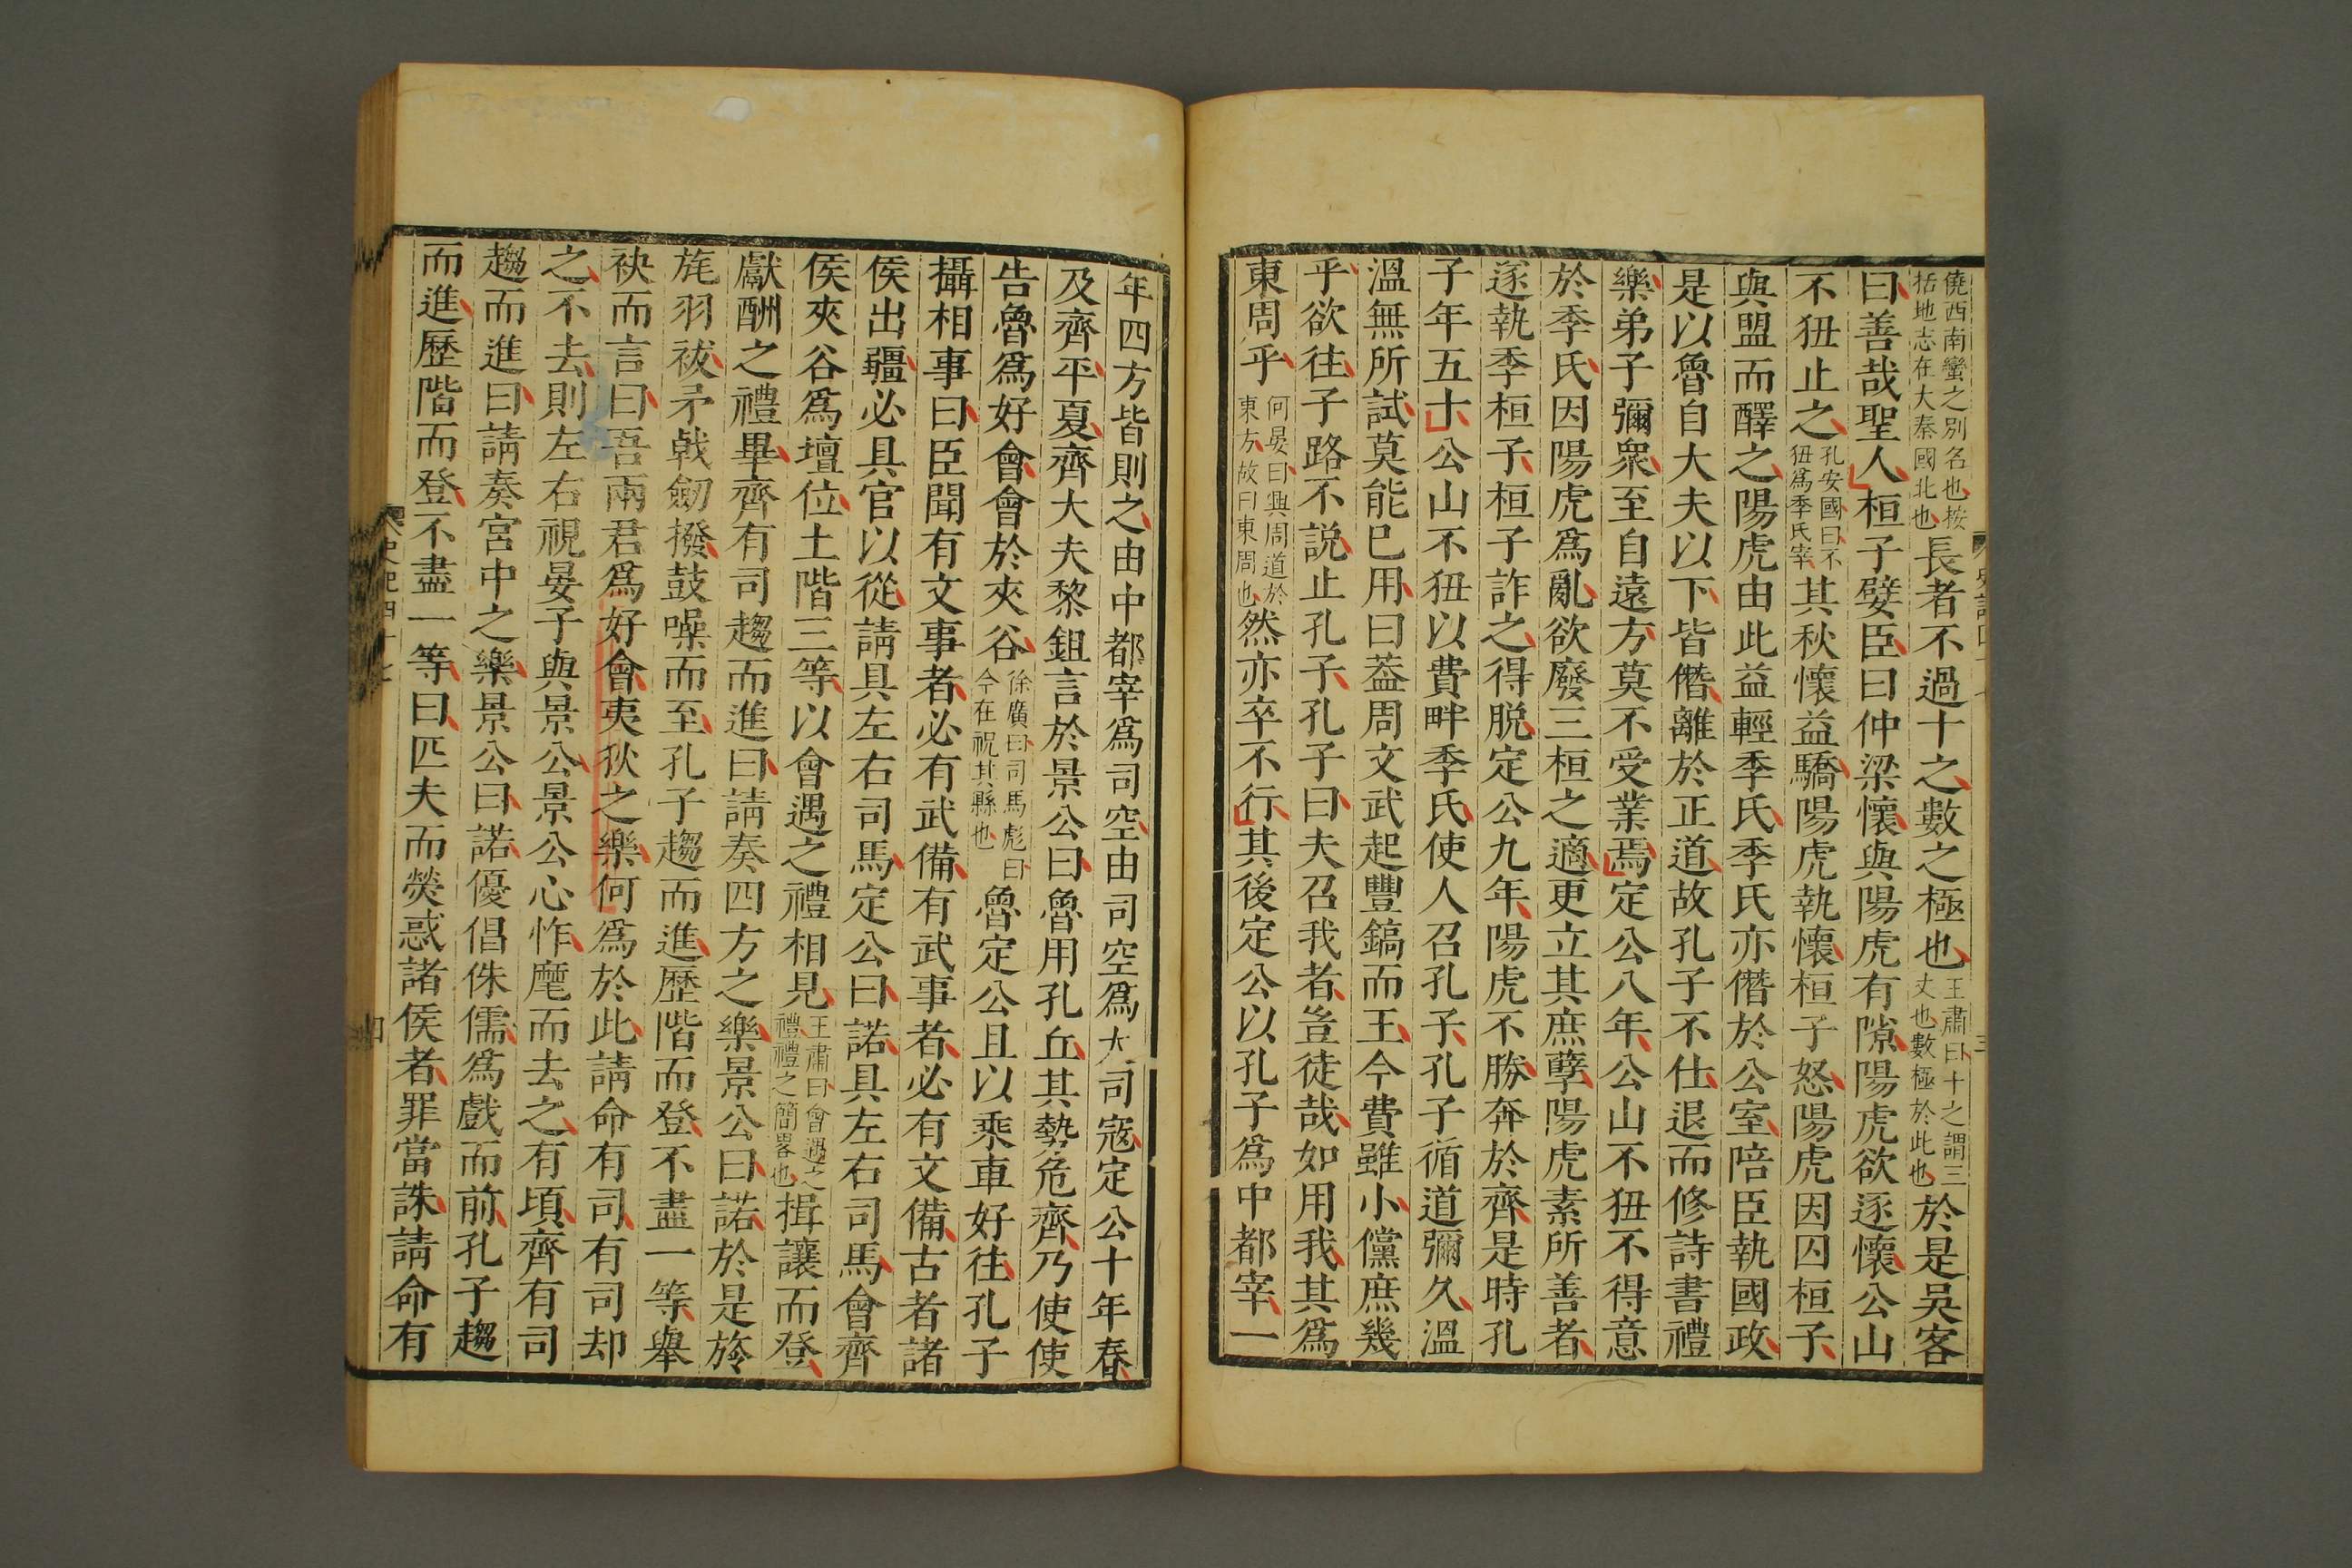 僥西南蠻之別名也按
括地志在大秦國北也
長者不過十之數之極也
王肅曰十之謂三
丈也數極於此也
於是吳客
曰善哉聖人桓子嬖臣曰仲梁懷與陽虎有隙陽虎欲逐懷公山
不狃止之
孔安國曰不
狃爲季氏宰
其秋懷益驕陽虎執懷桓子怒陽虎因囚桓子
與盟而醳之陽虎由此益輕季氏季氏亦僭於公室陪臣執國政
是以魯自大夫以下皆僭離於正道故孔子不仕退而修詩書禮
樂弟子彌衆至自遠方莫不受業焉定公八年公山不狃不得意
於季氏因陽虎爲亂欲廢三桓之適更立其庶孽陽虎素所善者
遂執季桓子桓子詐之得脫定公九年陽虎不勝奔於齊是時孔
子年五十公山不狃以費畔季氏使人召孔子孔子循道彌久溫
溫無所試莫能已用曰蓋周文武起豐鎬而王今費雖小儻庶幾
乎欲往子路不說止孔子孔子曰夫召我者豈徒哉如用我其爲
東周乎
何晏曰興周道於
東方故曰東周也
然亦卒不行其後定公以孔子爲中都宰一
年四方皆則之由中都宰爲司空由司空爲大司寇定公十年春
及齊平夏齊大夫黎鉏言於景公曰魯用孔丘其勢危齊乃使使
告魯爲好會會於夾谷
徐廣曰司馬彪曰
今在祝其縣也
魯定公且以乘車好往孔子
攝相事曰臣聞有文事者必有武備有武事者必有文備古者諸
侯出疆必具官以從請具左右司馬定公曰諾具左右司馬會齊
侯夾谷爲壇位土階三等以會遇之禮相見
王肅曰會遇之
禮禮之簡畧也
揖讓而登
獻酬之禮畢齊有司趨而進曰請奏四方之樂景公曰諾於是旍
旄羽祓矛戟劒撥鼓噪而至孔子趨而進歷階而登不盡一等舉
袂而言曰吾兩君爲好會夷狄之樂何爲於此請命有司有司却
之不去則左右視晏子與景公景公心怍麾而去之有頃齊有司
趨而進曰請奏宮中之樂景公曰諾優倡侏儒爲戲而前孔子趨
而進歷階而登不盡一等曰匹夫而熒惑諸侯者罪當誅請命有
史記四十七
四